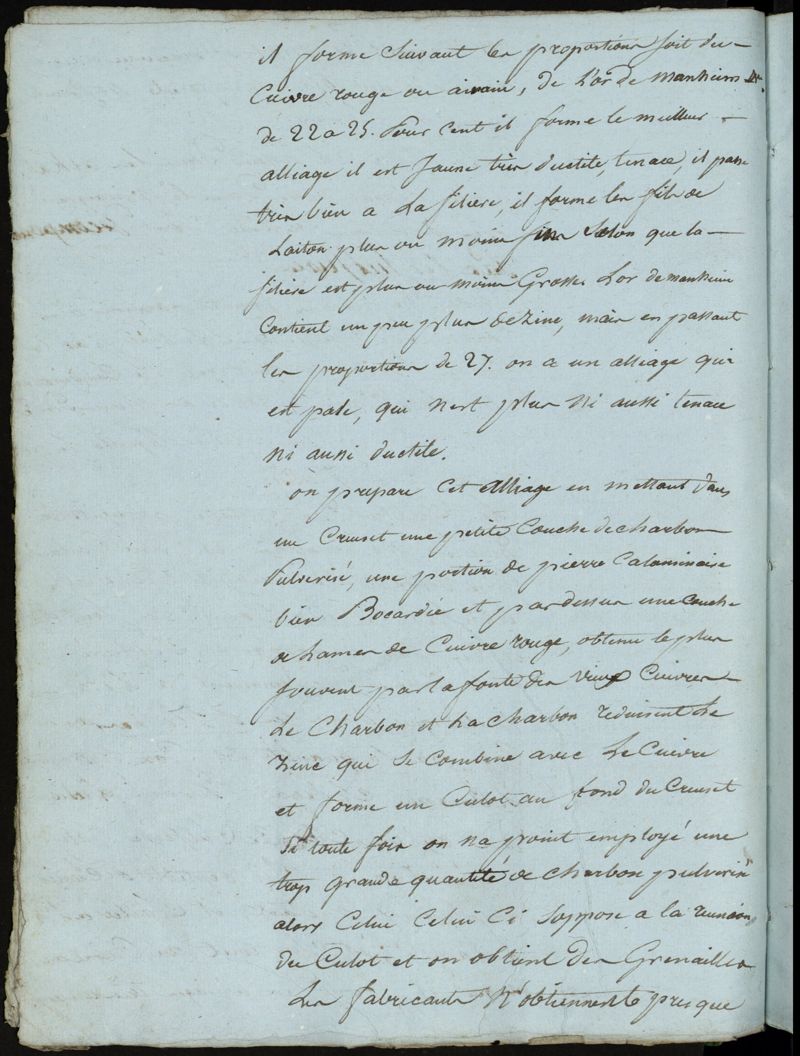 il forme suivant les proportions soit du
Cuivre rouge ou airain, de L'or de manheim &c.
de 22 a 25. Pour Cent il forme le meilleur
alliage il est Jaune très ductile, tenace, il passe
très bien a La filiere, il forme les fils de
Laiton plus ou moins fins Selon que la
filiere est plus ou moins Grosse. L'or de manheim
Contient un peu plus de Zinc, mais en passant
les proportions de 27. on a un alliage qui
est pale, qui n'est plus ni aussi tenace
ni aussi ductile.
on prepare Cet alliage en mettant dans
un Creuset une petite Couche de charbon
Pulverisé, une portion de pierre Calaminaise
bien Bocardée et par dessus une Couche
de Lames de Cuivre rouge, obtenu le plus
souvent par la fonte des vieux Cuivres
Le Charbon et La charbon reduisent Le
Zinc qui se Combine avec Le Cuivre
et forme un Culot au fond du Creuset
Si toute fois on n'a point employé une
trop grande quantité de Charbon pulverisé
alors Celui Celui Ci s'oppose a la reunion
du Culot et on obtient des Grenailles
Les fabricants N'obtiennent presque